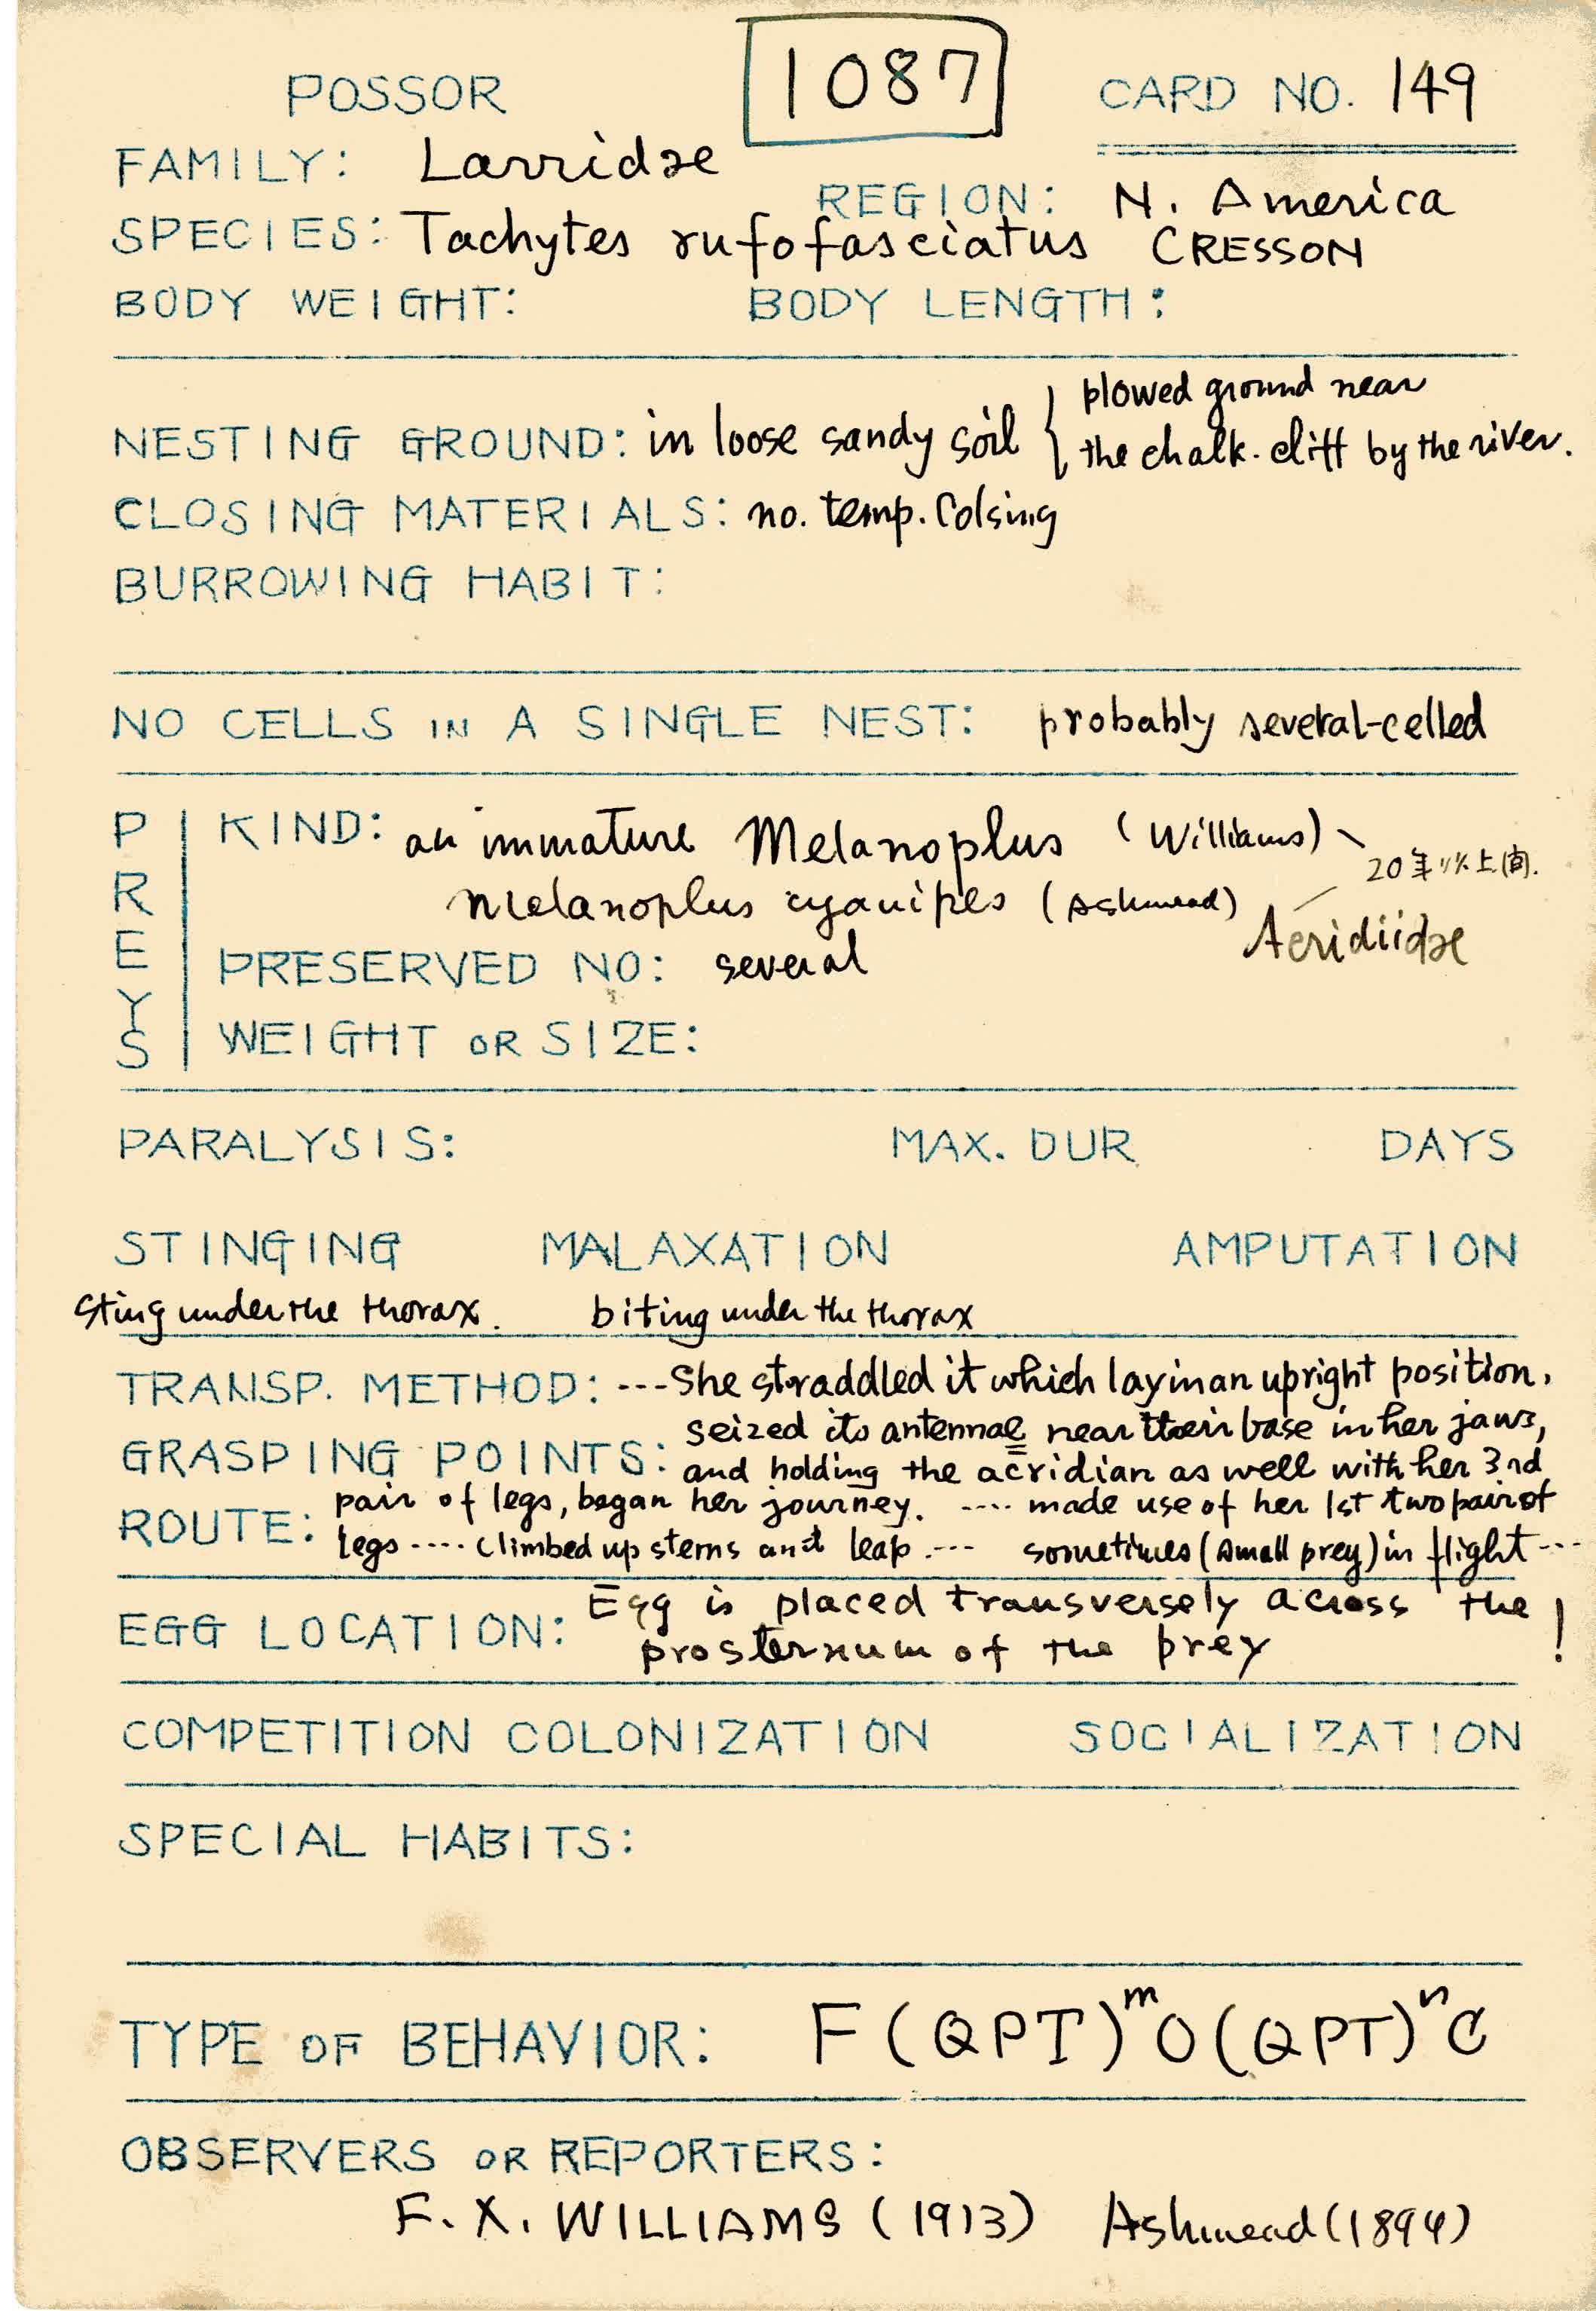 1087
POSSOR CARD NO. 149
FAMILY: Larridae
REGION: N. America
SPECIES: Tachytes rufofasciatus CRESSON
BODY WEIGHT: BODY LENGTH:
NESTING GROUND: in loose sandy soil { plowed ground near
the chalk-cliff by the river.
CLOSING MATERIALS: no. temp. Colsing
BURROWING HABIT:
NO CELLS IN A SINGLE NEST: probably several-celled
PREYS
KIND: an immature Melanoplus (Williams)
20年以上前.
Melanoplus cyanipes (Ashmead)
Acridiidae
PRESERVED NO: several
WEIGHT OR SIZE:
PARALYSIS: MAX. DUR. DAYS
STINGING MALAXATION AMPUTATION
Sting under the thorax. biting under the thorax
TRANSP. METHOD: ---She straddled it which lay in an upright position,
GRASPING POINTS: seized its antennae near their base in her jaws,
and holding the acridian as well with her 3rd
ROUTE: pair of legs, began her journey. ---- made use of her 1st two pair of
legs ---- climbed up stems and leap ---- sometimes (small prey) in flight ---
EGG LOCATION: Egg is placed transversely across the
prosternum of the prey !
COMPETITION COLONIZATION SOCIALIZATION
SPECIAL HABITS:
TYPE OF BEHAVIOR: F(QPT)^m O(QPT)^n C
OBSERVERS OR REPORTERS:
F. X. WILLIAMS (1913) Ashmead (1894)